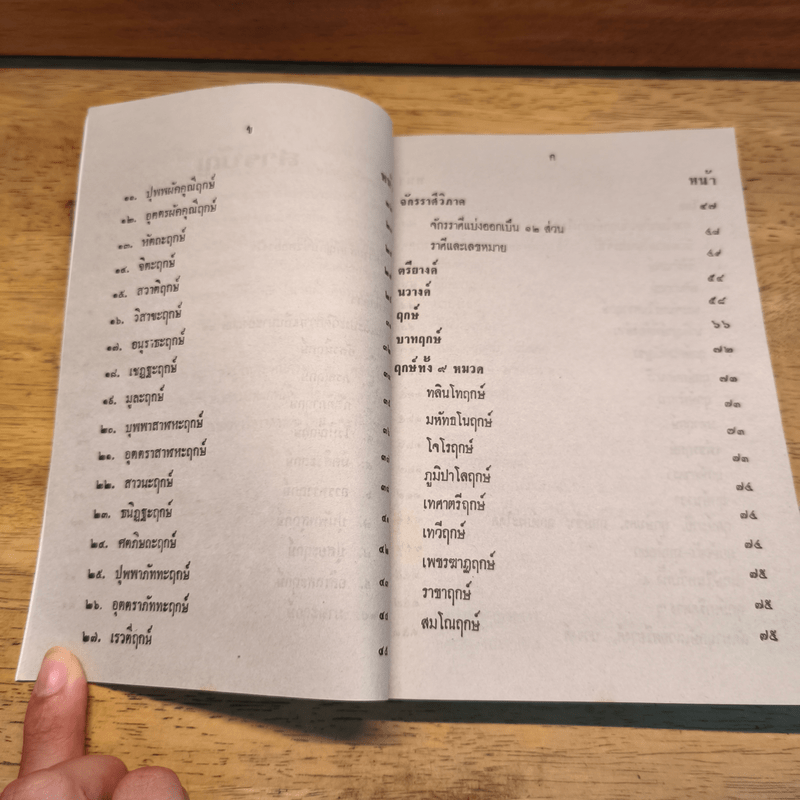 ข
หน้า
๑๑. ปุพพผัคคุณีฤกษ์
๑๒. อุตตรผัคคุณีฤกษ์
๑๓. หัตถะฤกษ์
๑๔. จิตะฤกษ์
๑๕. สวาติฤกษ์
๑๖. วิสาขะฤกษ์
๑๗. อนุราธะฤกษ์
๑๘. เชฏฐะฤกษ์
๑๙. มูละฤกษ์
๒๐. บุพพาสาฬหะฤกษ์
๒๑. อุตตราสาฬหะฤกษ์
๒๒. สาวนะฤกษ์
๒๓. ธนิฏฐะฤกษ์
๒๔. ศตภิษถะฤกษ์ ๔๒
๒๕. ปุพพาภัททะฤกษ์ ๔๓
๒๖. อุตตราภัททะฤกษ์ ๔๔
๒๗. เรวตีฤกษ์ ๔๕
ค
หน้า
จักรราศีวิภาค ๔๗
จักรราศีแบ่งออกเป็น ๑๒ ส่วน ๔๗
ราศีและเลขหมาย ๔๙
ตรียางค์ ๕๔
นวางค์ ๕๘
ฤกษ์ ๖๖
บาทฤกษ์ ๗๒
ฤกษ์ทั้ง ๙ หมวด ๗๓
ทลิโทฤกษ์ ๗๓
มหัทธโนฤกษ์ ๗๓
โจโรฤกษ์ ๗๓
ภูมิปาโลฤกษ์ ๗๔
เทศาตรีฤกษ์ ๗๔
เทวีฤกษ์ ๗๔
เพชรฆาฏฤกษ์ ๗๕
ราชาฤกษ์ ๗๕
สมโณฤกษ์ ๗๕